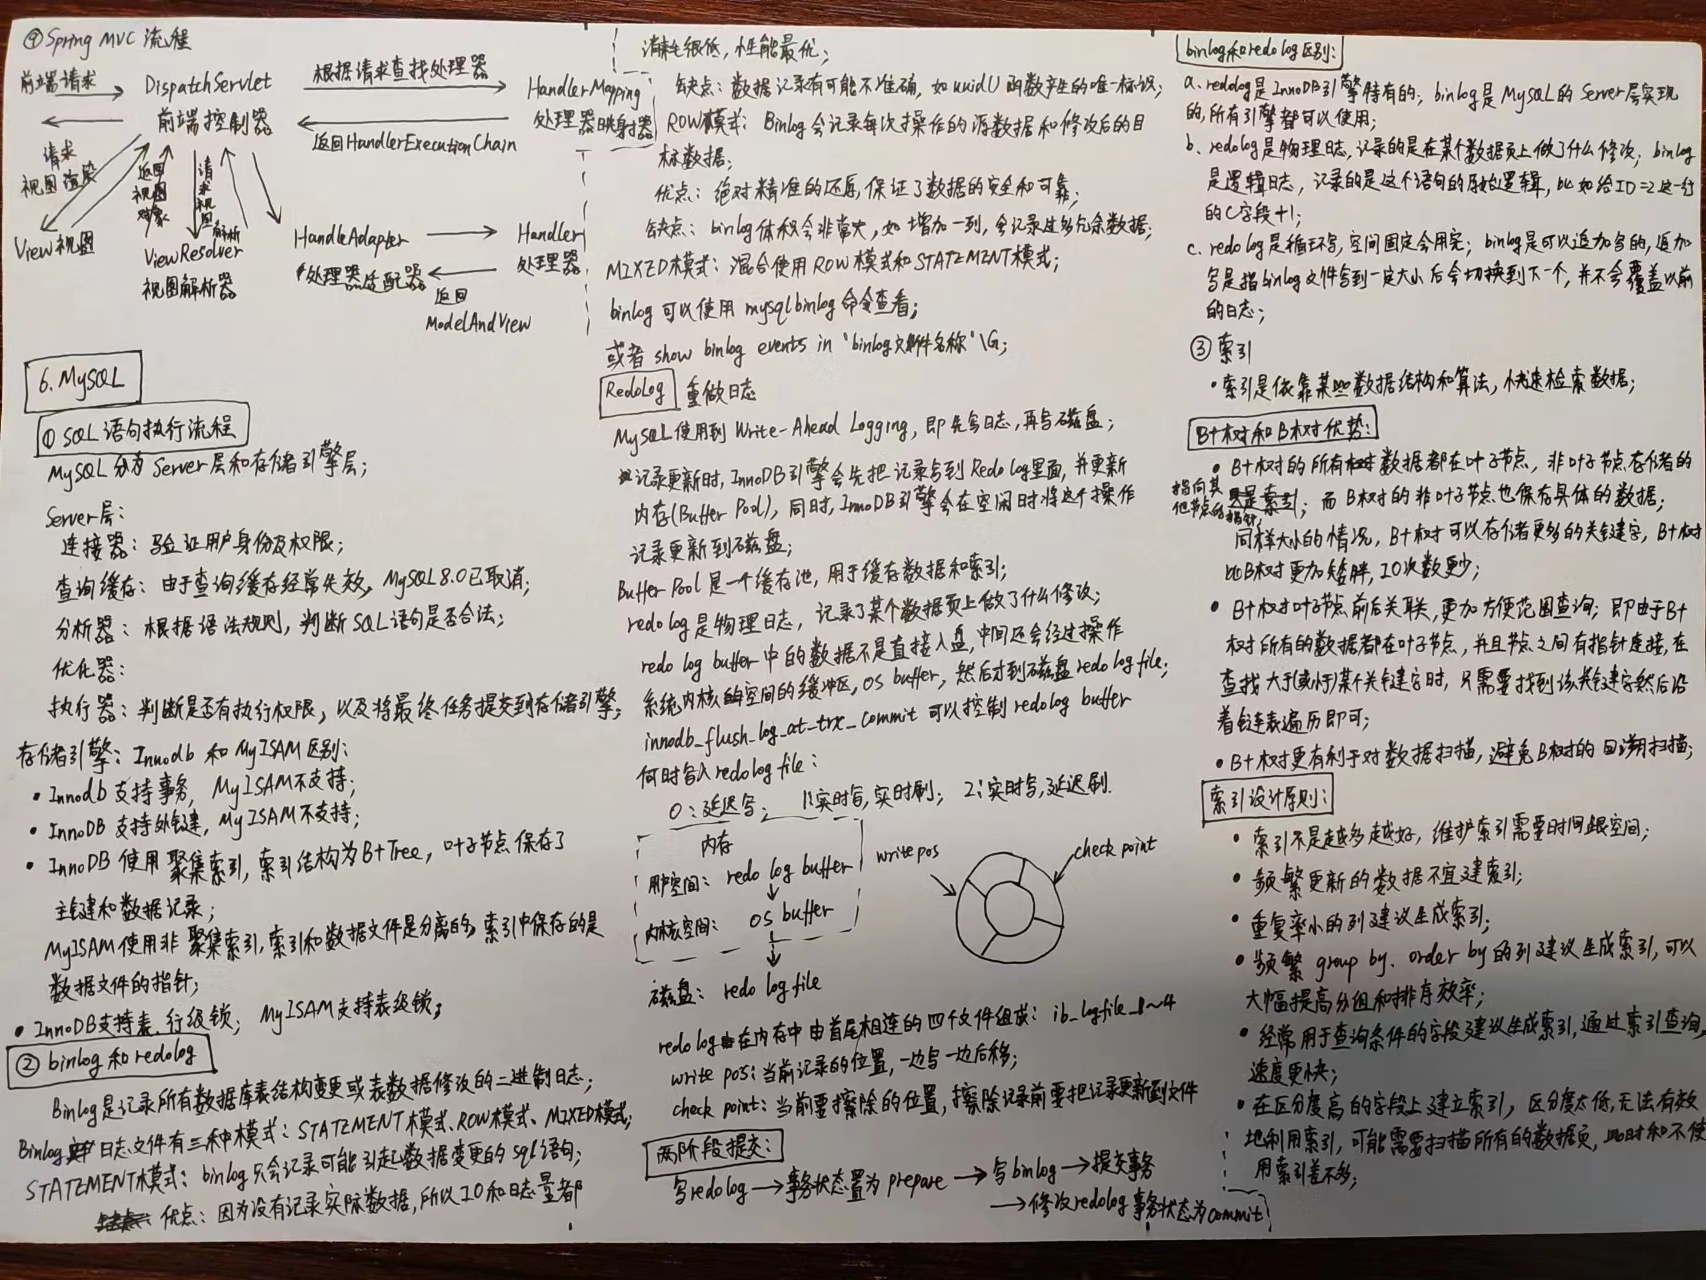 ⑨Spring MVC 流程
前端请求
DispatchServlet
前端控制器
根据请求查找处理器
HandlerMapping
处理器映射器
返回HandlerExecutionChain
请求
视图渲染
返回
视图
对象
请求视图解析
View视图
ViewResolver
视图解析器
HandleAdapter
处理器适配器
Handler
处理器
返回
ModelAndView
6. MySQL
① SQL语句执行流程
MySQL分为Server层和存储引擎层；
Server层：
连接器：验证用户身份及权限；
查询缓存：由于查询缓存经常失效，MySQL8.0已取消；
分析器：根据语法规则，判断SQL语句是否合法；
优化器：
执行器：判断是否有执行权限，以及将最终任务提交到存储引擎；
存储引擎：Innodb 和 MyISAM区别：
• Innodb支持事务，MyISAM不支持；
• InnoDB 支持外键，MyISAM不支持；
• InnoDB 使用聚集索引，索引结构为B+Tree，叶子节点保存了
主键和数据记录；
MyISAM使用非聚集索引，索引和数据文件是分离的，索引中保存的是
数据文件的指针；
• InnoDB支持表、行级锁；MyISAM支持表级锁；
② binlog 和 redolog
Binlog是记录所有数据库表结构变更或表数据修改的二进制日志；
Binlog日志文件有三种模式：STATEMENT模式、ROW模式、MIXED模式；
STATEMENT模式：binlog只会记录可能引起数据变更的sql语句；
优点：因为没有记录实际数据，所以IO和日志量都
消耗很低，性能最优；
缺点：数据记录有可能不准确，如uuid()函数产生的唯一标识；
ROW模式：Binlog会记录每次操作的源数据和修改后的目
标数据；
优点：绝对精准的还原，保证了数据的安全和可靠；
缺点：binlog体积会非常大，如增加一列，会记录过多冗余数据；
MIXED模式：混合使用ROW模式和STATEMENT模式；
binlog可以使用 mysqlbinlog命令查看；
或者 show binlog events in 'binlog文件名称'\G；
Redolog 重做日志
MySQL使用到 Write-Ahead Logging，即先写日志，再写磁盘；
记录更新时，InnoDB引擎会先把记录写到Redolog里面，并更新
内存(Buffer Pool)，同时，InnoDB引擎会在空闲时将这个操作
记录更新到磁盘；
Buffer Pool是一个缓存池，用于缓存数据和索引；
redo log是物理日志，记录了某个数据页上做了什么修改；
redo log buffer中的数据不是直接入盘，中间还会经过操作
系统内核的空间的缓冲区，OS buffer，然后才到磁盘redo log file；
innodb_flush_log_at_trx_commit可以控制redolog buffer
何时写入redologfile：
0：延迟写； 1：实时写，实时刷； 2：实时写，延迟刷.
内存
用户空间：redo log buffer
内核空间： OS buffer
磁盘：redo logfile
write pos
check point
redo log在内存中由首尾相连的四个文件组成：ib_logfile_1~4
write pos：当前记录的位置，一边写一边后移；
check point：当前要擦除的位置，擦除记录前要把记录更新到文件
两阶段提交：
写redolog→事务状态置为prepare→写binlog→提交事务
→修改redolog事务状态为commit
binlog和redolog区别：
a. redolog是InnoDB引擎特有的；binlog是MySQL的Server层实现
的，所有引擎都可以使用；
b. redolog是物理日志，记录的是在某个数据页上做了什么修改；binlog
是逻辑日志，记录的是这个语句的原始逻辑，比如给ID=2这一行
的C字段+1；
c. redo log是循环写，空间固定会用完；binlog是可以追加写的，追加
写是指binlog文件写到一定大小后会切换到下一个，并不会覆盖以前
的日志；
③ 索引
• 索引是依靠某些数据结构和算法，快速检索数据；
B+树和B树优势：
• B+树的所有数据都在叶子节点，非叶子节点存储的
指向其
他节点的指针
是索引；而B树的非叶子节点也保存具体的数据；
同样大小的情况，B+树可以存储更多的关键字，B+树
比B树更加矮胖，IO次数更少；
• B+树叶子节点前后关联，更加方便范围查询；即由于B+
树所有的数据都在叶子节点，并且节点之间有指针连接，在
查找大于(或小于)某个关键字时，只需要找到该关键字然后沿
着链表遍历即可；
• B+树更有利于对数据扫描，避免B树的回溯扫描；
索引设计原则：
• 索引不是越多越好，维护索引需要时间跟空间；
• 频繁更新的数据不宜建索引；
• 重复率小的列建议生成索引；
• 频繁 group by、order by的列建议生成索引，可以
大幅提高分组和排序效率；
• 经常用于查询条件的字段建议生成索引，通过索引查询，
速度更快；
• 在区分度高的字段上建立索引，区分度太低，无法有效
地利用索引，可能需要扫描所有的数据页，此时和不使
用索引差不多；